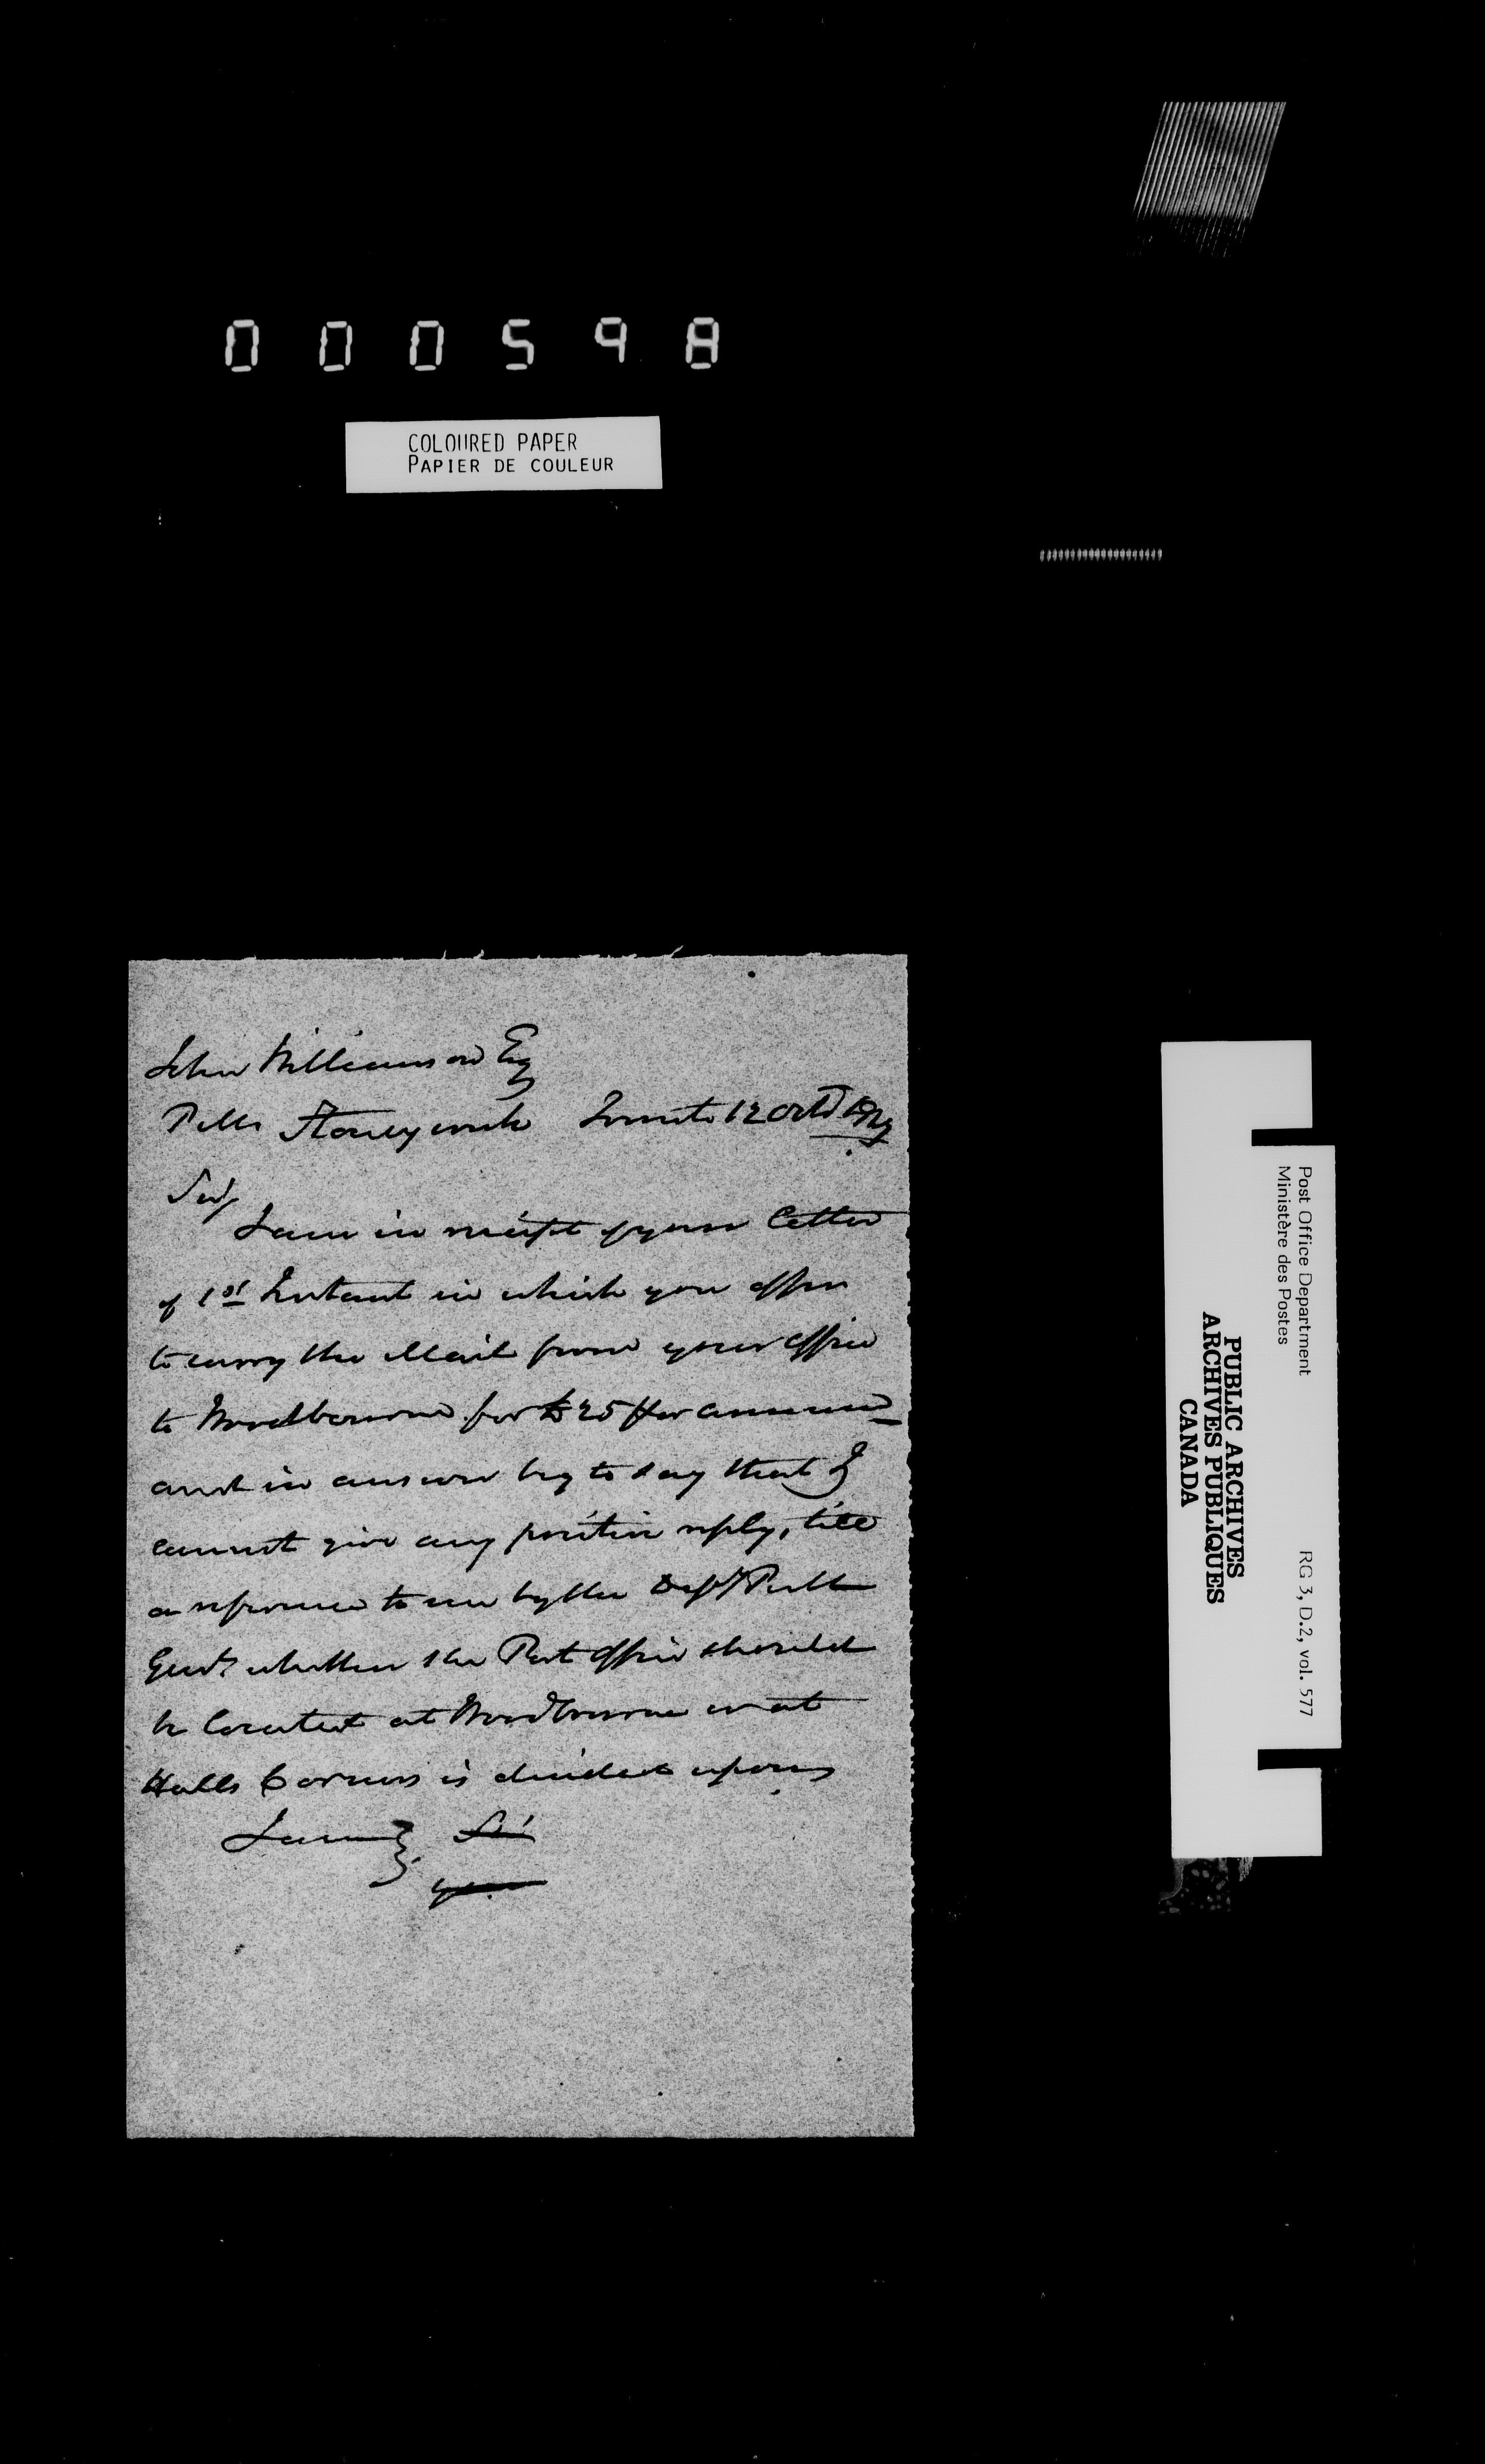 000598
COLOURED PAPER
PAPIER DE COULEUR
John Williamson Esq
Toronto 12 Octr
Sir/
I am in receipt of your letter
of 1st Instant in which you offer
to carry the Mail from your office
to Woodbourne for £25 per annum
and in answer beg to say that I
cannot give any positive reply, till
a reference to me by the Depy
Genl whether the Post office should
be located at Woodbourne or at
Halls Corners is decided upon
I am Sir
Post Office Department
Ministère des Postes
RG 3, D.2, vol. 577
PUBLIC ARCHIVES
ARCHIVES PUBLIQUES
CANADA